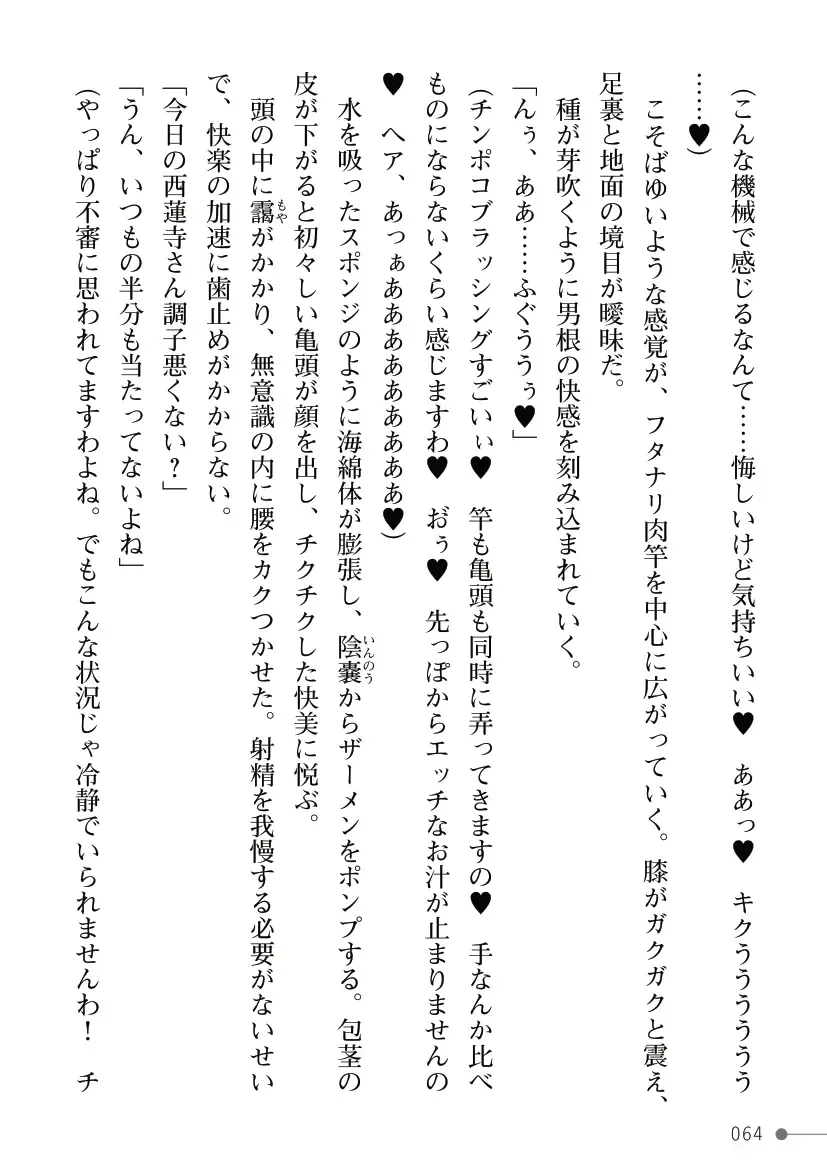 （こんな機械で感じるなんて……悔しいけど気持ちいい♥　ああっ♥　キクうううううう
……♥）
こそばゆいような感覚が、フタナリ肉竿を中心に広がっていく。膝がガクガクと震え、
足裏と地面の境目が曖昧だ。
種が芽吹くように男根の快感を刻み込まれていく。
「んぅ、ああ……ふぐううぅ♥」
（チンポコブラッシングすごいぃ♥　竿も亀頭も同時に弄ってきますの♥　手なんか比べ
ものにならないくらい感じますわ♥　お゛ぅ♥　先っぽからエッチなお汁が止まりませんの
♥　ヘア、あっぁあああああああああ♥）
水を吸ったスポンジのように海綿体が膨張し、陰嚢からザーメンをポンプする。包茎の
いんのう
皮が下がると初々しい亀頭が顔を出し、チクチクした快美に悦ぶ。
頭の中に靄がかかり、無意識の内に腰をカクつかせた。射精を我慢する必要がないせい
もや
で、快楽の加速に歯止めがかからない。
「今日の西蓮寺さん調子悪くない？」
「うん、いつもの半分も当たってないよね」
（やっぱり不審に思われてますわよね。でもこんな状況じゃ冷静でいられませんわ！　チ
064